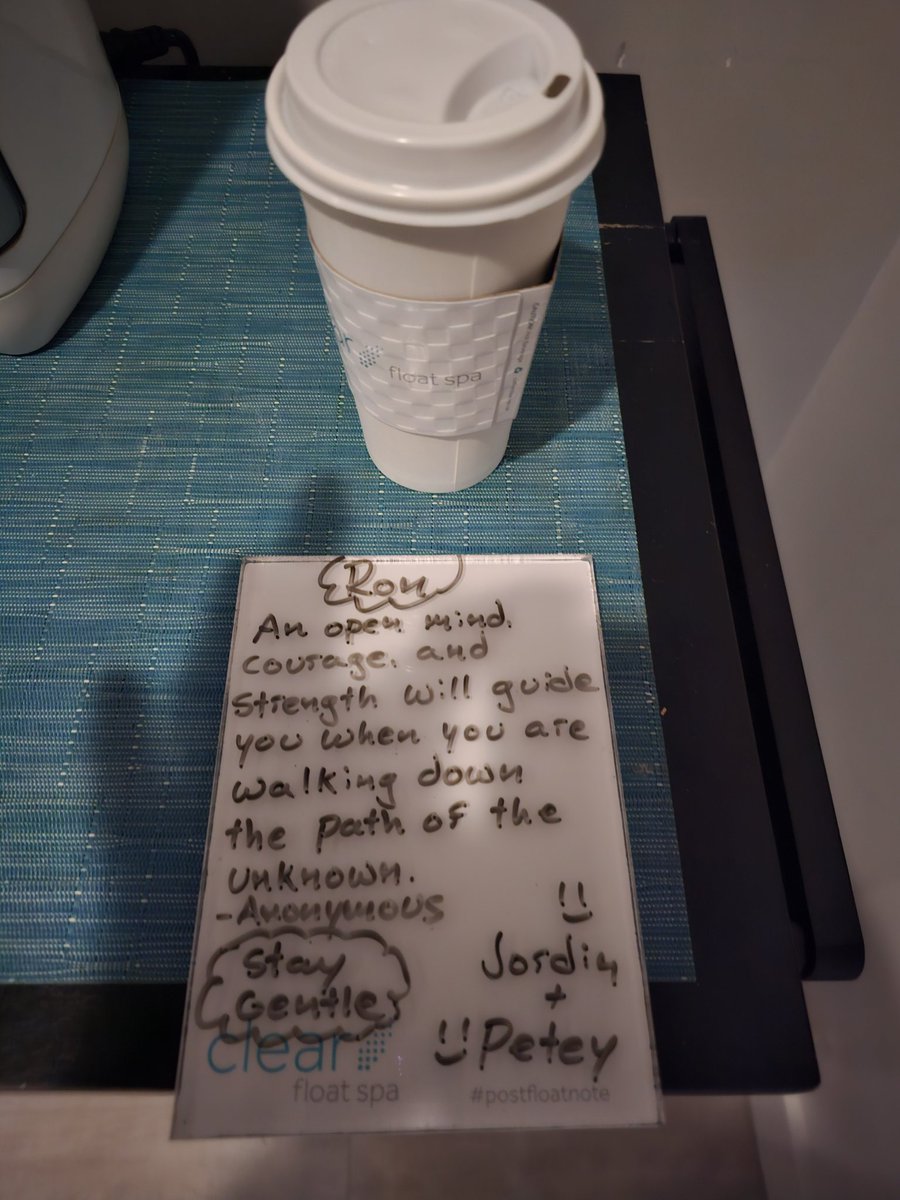 float spa
Ron
An open mind,
courage, and
strength will guide
you when you are
walking down
the path of the
unknown.
-Anonymous
Stay
Gentle
Jordin
+
Petey
clear
float spa
#postfloatnote